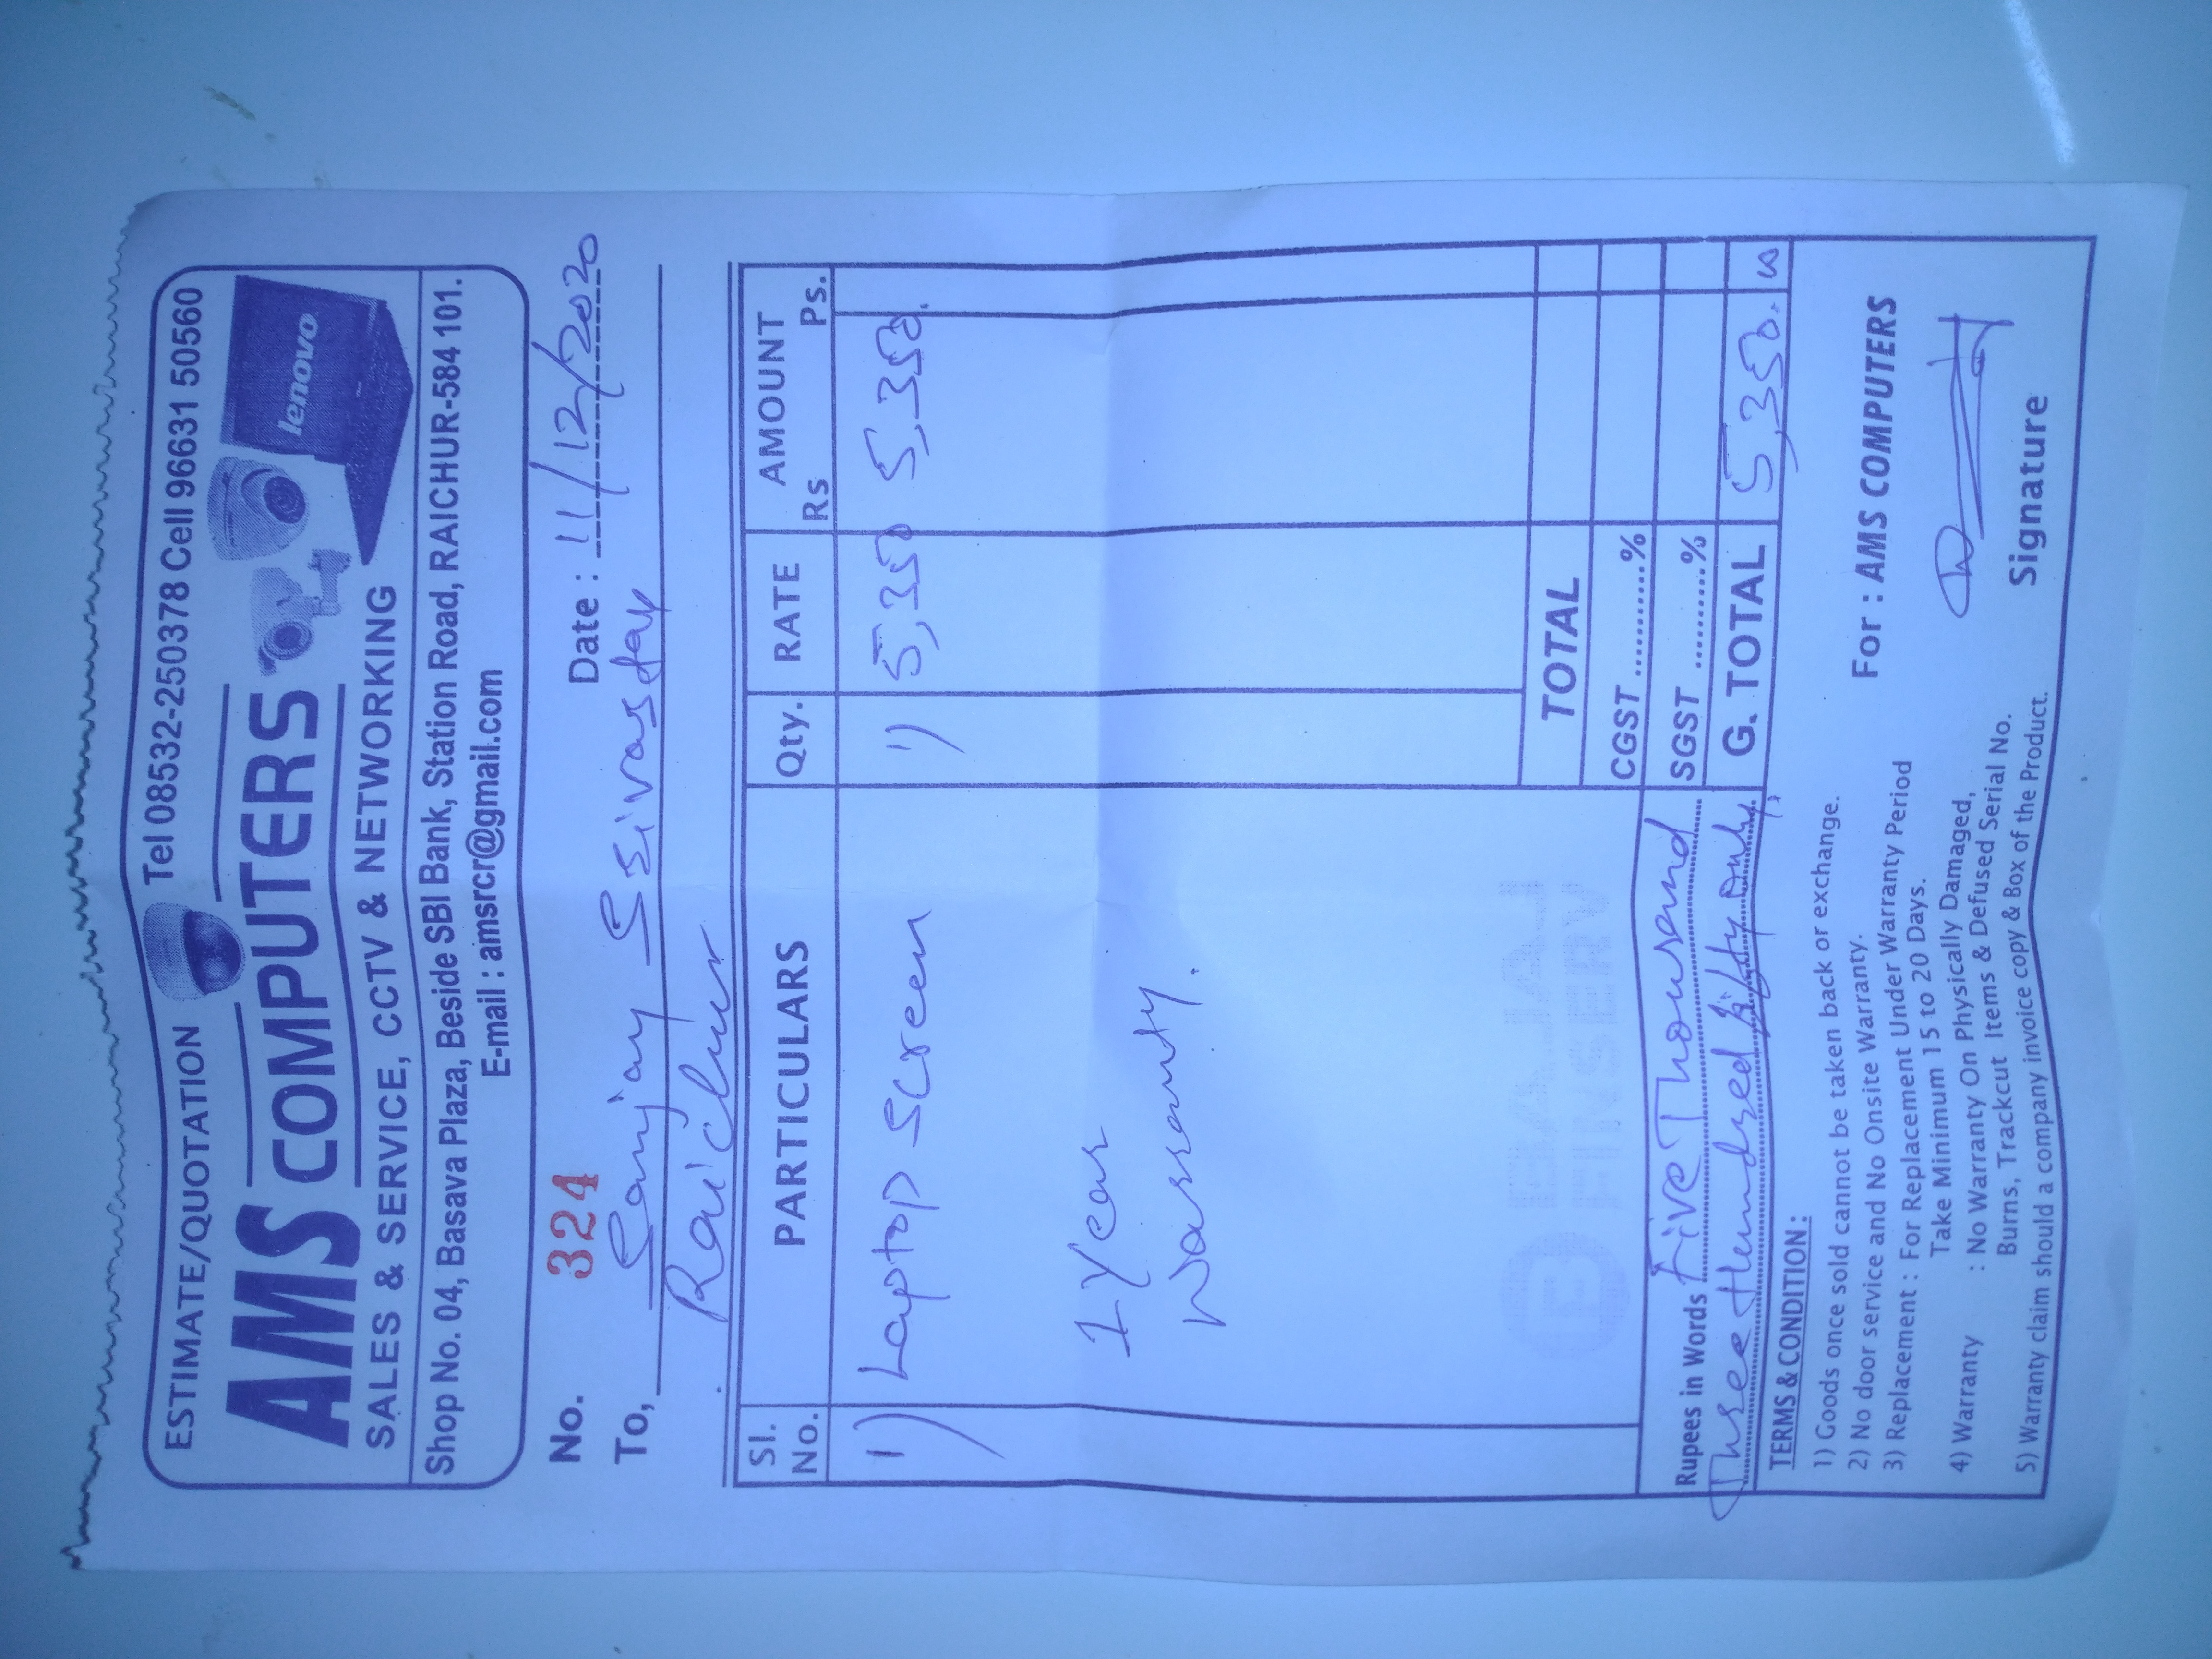 ESTIMATE/QUOTATION
Tel 08532-250378 Cell 96631 50560
AMS COMPUTERS
lenovo
SALES & SERVICE, CCTV & NETWORKING
Shop No. 04, Basava Plaza, Beside SBI Bank, Station Road, RAICHUR-584 101.
E-mail : amsrcr@gmail.com
No. 324 Date : 11/12/2020
To, Sanjay Srivastav
Raichur
Sl. No. PARTICULARS Qty. RATE AMOUNT Rs Ps.
1) Laptop Screen 1) 5,350 5,350.
1 Year
Warranty.
BAJAJ
FINSERV
TOTAL
CGST ...........%
SGST ..........%
Rupees in Words Five Thousand
Three Hundred fifty only.
G. TOTAL 5,350. 00
TERMS & CONDITION :
1) Goods once sold cannot be taken back or exchange.
2) No door service and No Onsite Warranty.
3) Replacement : For Replacement Under Warranty Period
Take Minimum 15 to 20 Days.
4) Warranty : No Warranty On Physically Damaged,
Burns, Trackcut Items & Defused Serial No.
5) Warranty claim should a company invoice copy & Box of the Product.
For : AMS COMPUTERS
Signature